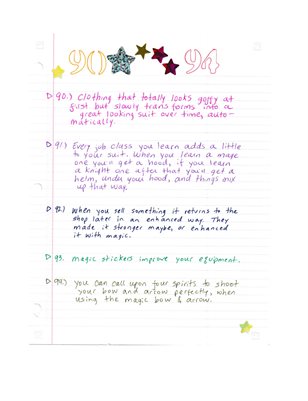 90 94
▷ 90.) Clothing that totally looks goffy at
first but slowly transforms into a
great looking suit over time, auto-
matically.
▷ 91.) Every job class you learn adds a little
to your suit. When you learn a mage
one you'd get a hood, if you learn
a knight one after that you'd get a
helm, under your hood, and things mix
up that way.
▷ 92.) When you sell something it returns to the
shop later in an enhanced way. They
made it stronger maybe, or enhanced
it with magic.
▷ 93. magic stickers improve your equipment.
▷ 94.) you can call upon four spirits to shoot
your bow and arrow perfectly, when
using the magic bow & arrow.